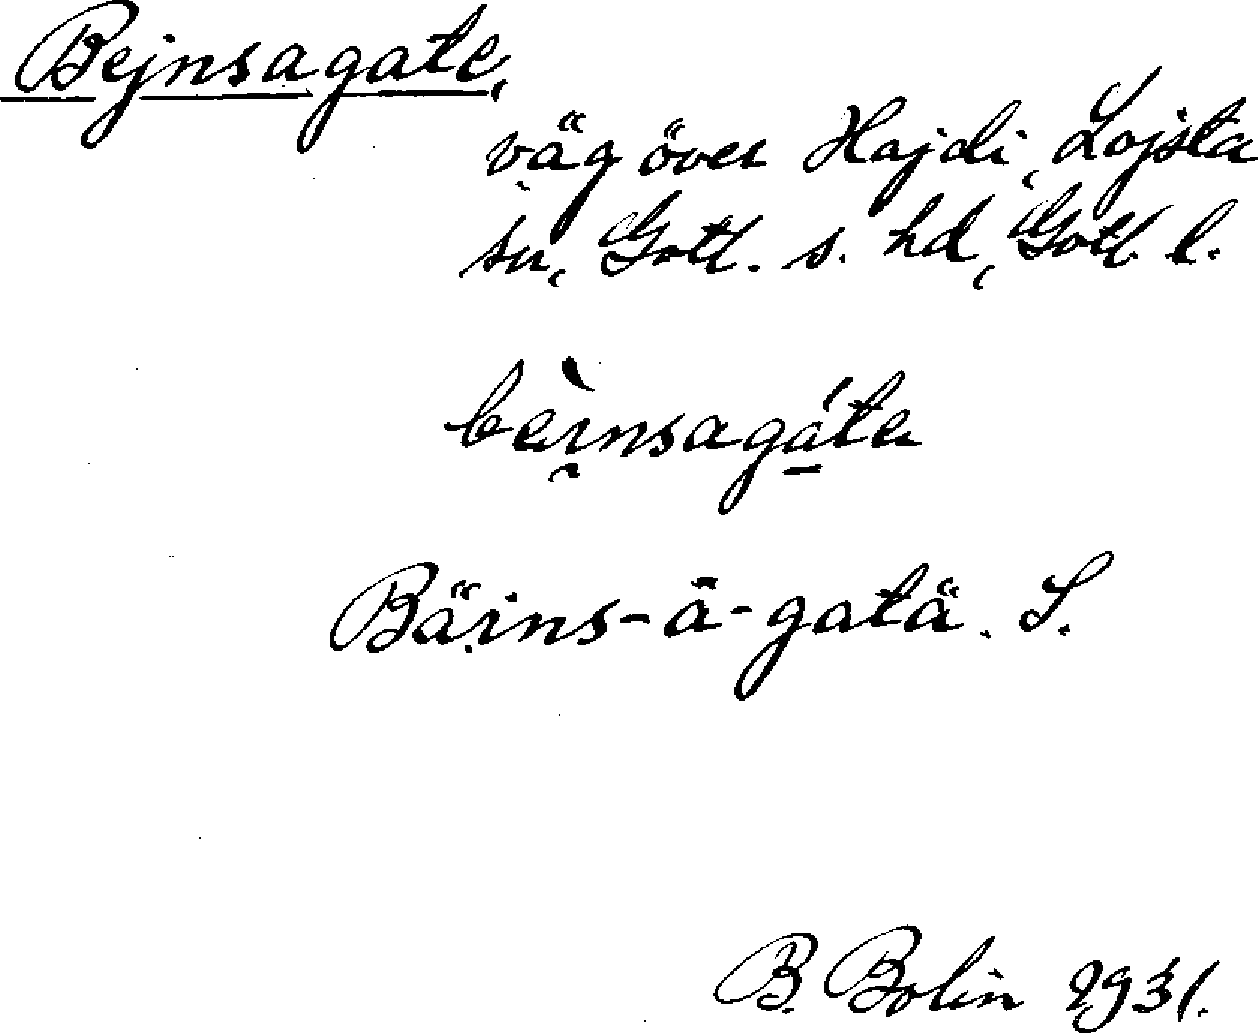 Bejnsagate,
väg över Hajdi, Lojsta
sn, Gotl. s. hd, Gotl. l.
bèi̯nsagáta
Bäins-ā-gatä. S.
B. Bolin 1931.